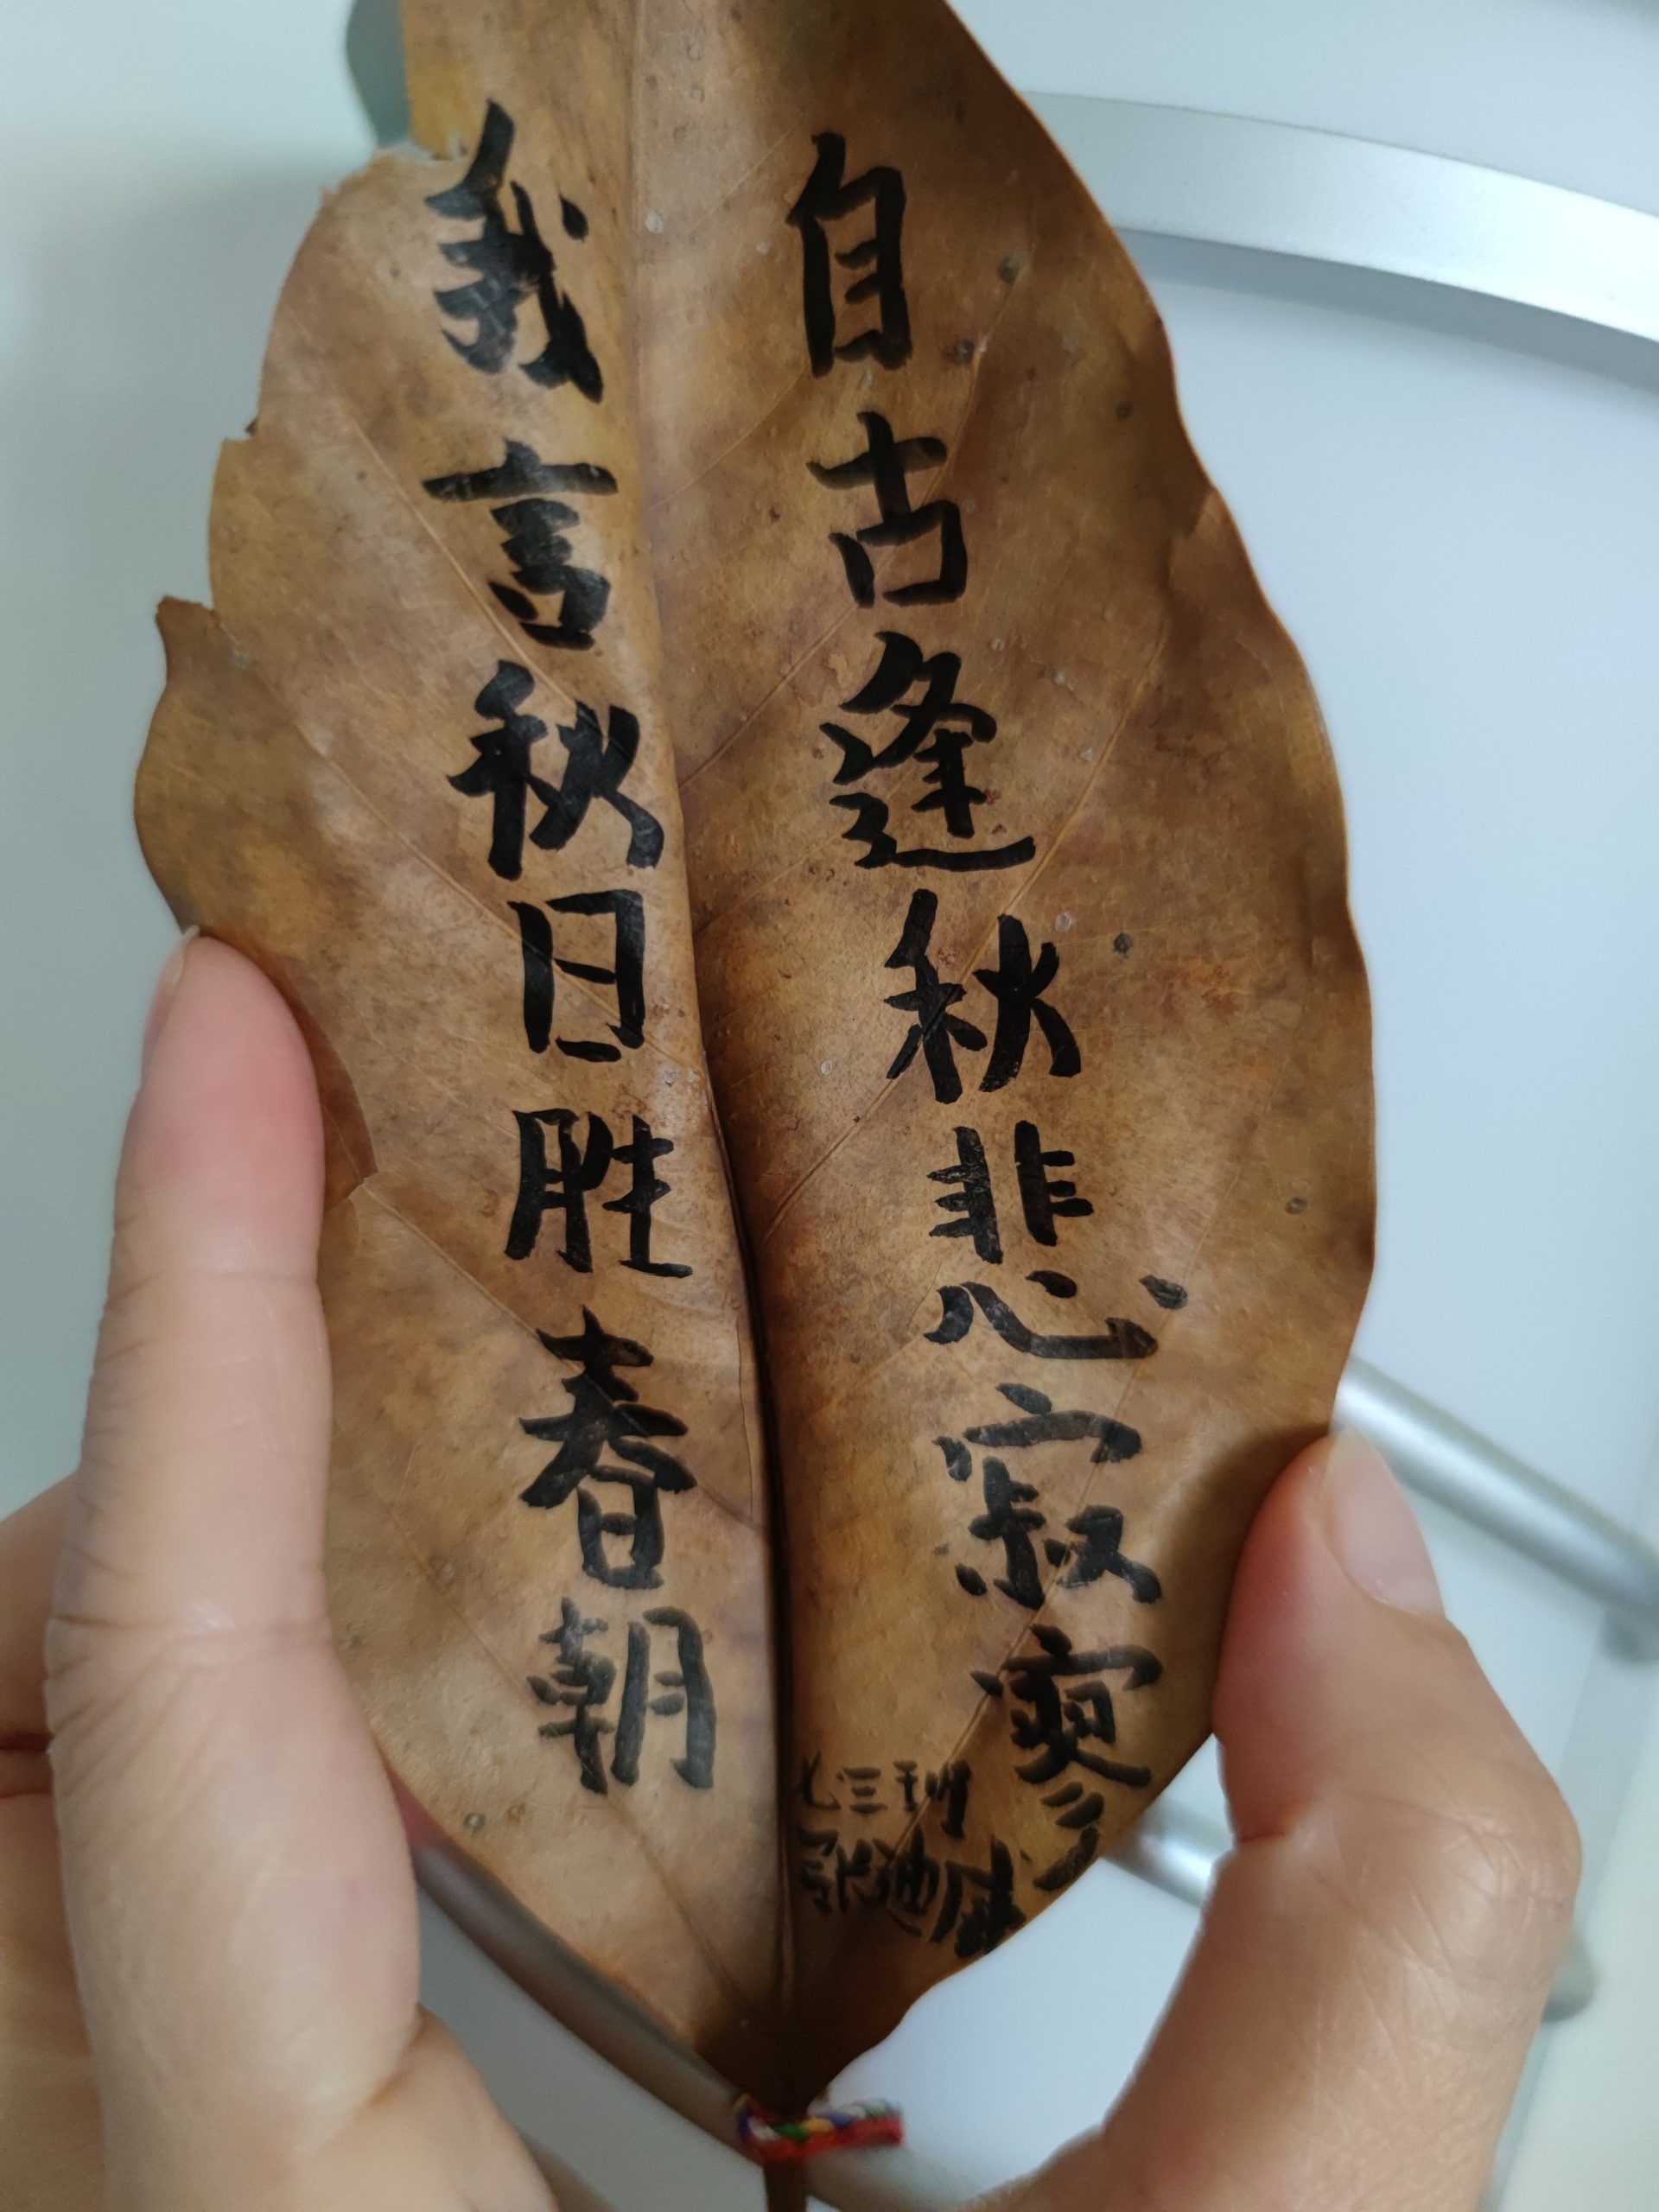 自古逢秋悲寂寥
我言秋日胜春朝
七三班
张迪